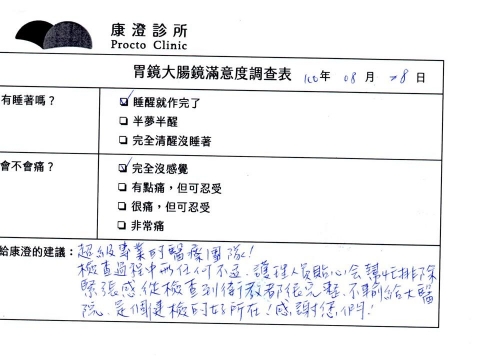 康澄診所
Procto Clinic
胃鏡大腸鏡滿意度調查表 100年 08月 28日
有睡著嗎?
☑ 睡醒就作完了
☐ 半夢半醒
☐ 完全清醒沒睡著
會不會痛?
☑ 完全沒感覺
☐ 有點痛,但可忍受
☐ 很痛,但可忍受
☐ 非常痛
給康澄的建議:超級專業的醫療團隊!
檢查過程中無任何不適、護理人員貼心會幫忙排除
緊張感從檢查到衛教都很完整、不輸給大醫
院、是個健檢的好所在!感謝您們!